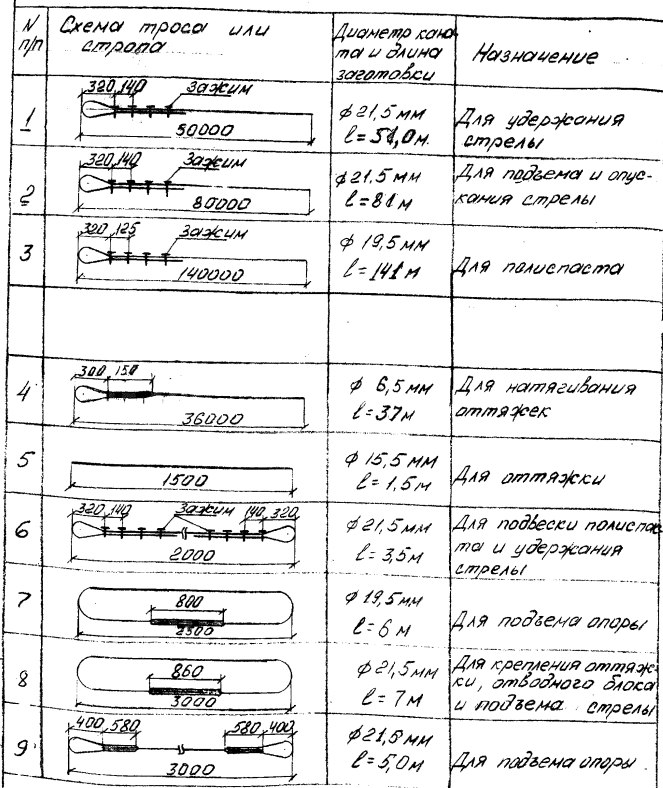 N п/п
Схема троса или
стропа
Диаметр кана
та и длина
заготовки
Назначение
1
320 140 Зажим
50000
ϕ 21,5 мм
l = 51,0 м.
Для удержания
стрелы
2
320 140 Зажим
80000
ϕ 21,5 мм
l = 81 м
Для подъема и опус-
кания стрелы
3
320 125 Зажим
140000
ϕ 19,5 мм
l = 141 м
Для полиспаста
4
300 150
36000
ϕ 6,5 мм
l = 37 м
Для натягивания
оттяжек
5
1500
ϕ 15,5 мм
l = 1,5 м
Для оттяжки
6
320 140 Зажим 140 320
2000
ϕ 21,5 мм
l = 3,5 м
Для подвески полиспа
та и удержания
стрелы
7
800
2500
ϕ 19,5 мм
l = 6 м
Для подъема опоры
8
860
3000
ϕ 21,5 мм
l = 7 м
Для крепления оттяж
ки, отводного блока
и подъема стрелы
9
400 580 580 400
3000
ϕ 21,5 мм
l = 5,0 м
Для подъема опоры